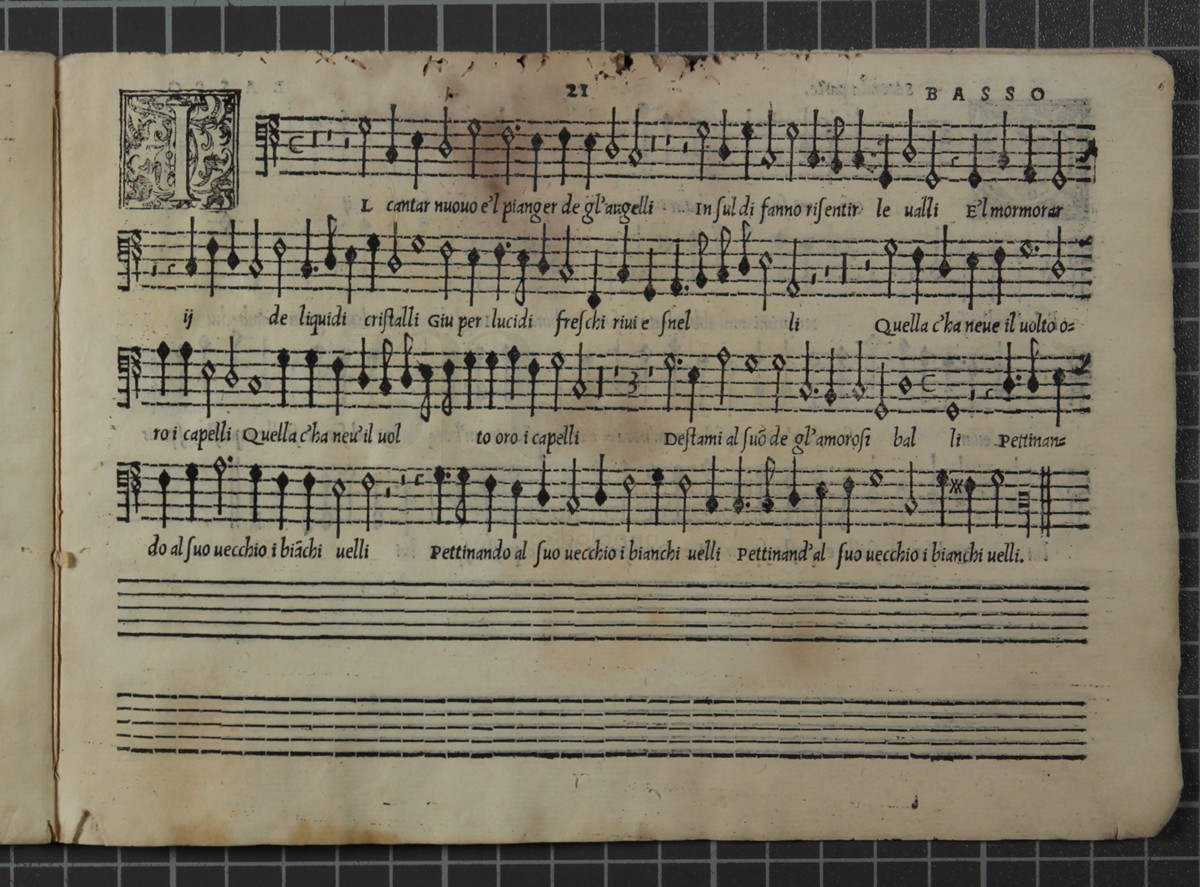 21 BASSO
IL cantar nuouo e'l pianger de gl'augelli In ſul di fanno riſentir le ualli E'l mormorar
ij de liquidi criſtalli Giu per lucidi freſchi riui e ſnel li Quella c'ha neue il uolto o=
ro i capelli Quella c'ha neu'il uol to oro i capelli Deſtami al ſuō de gl'amoroſi bal li Pettinan=
do al ſuo uecchio i biāchi uelli Pettinando al ſuo uecchio i bianchi uelli Pettinand'al ſuo uecchio i bianchi uelli.